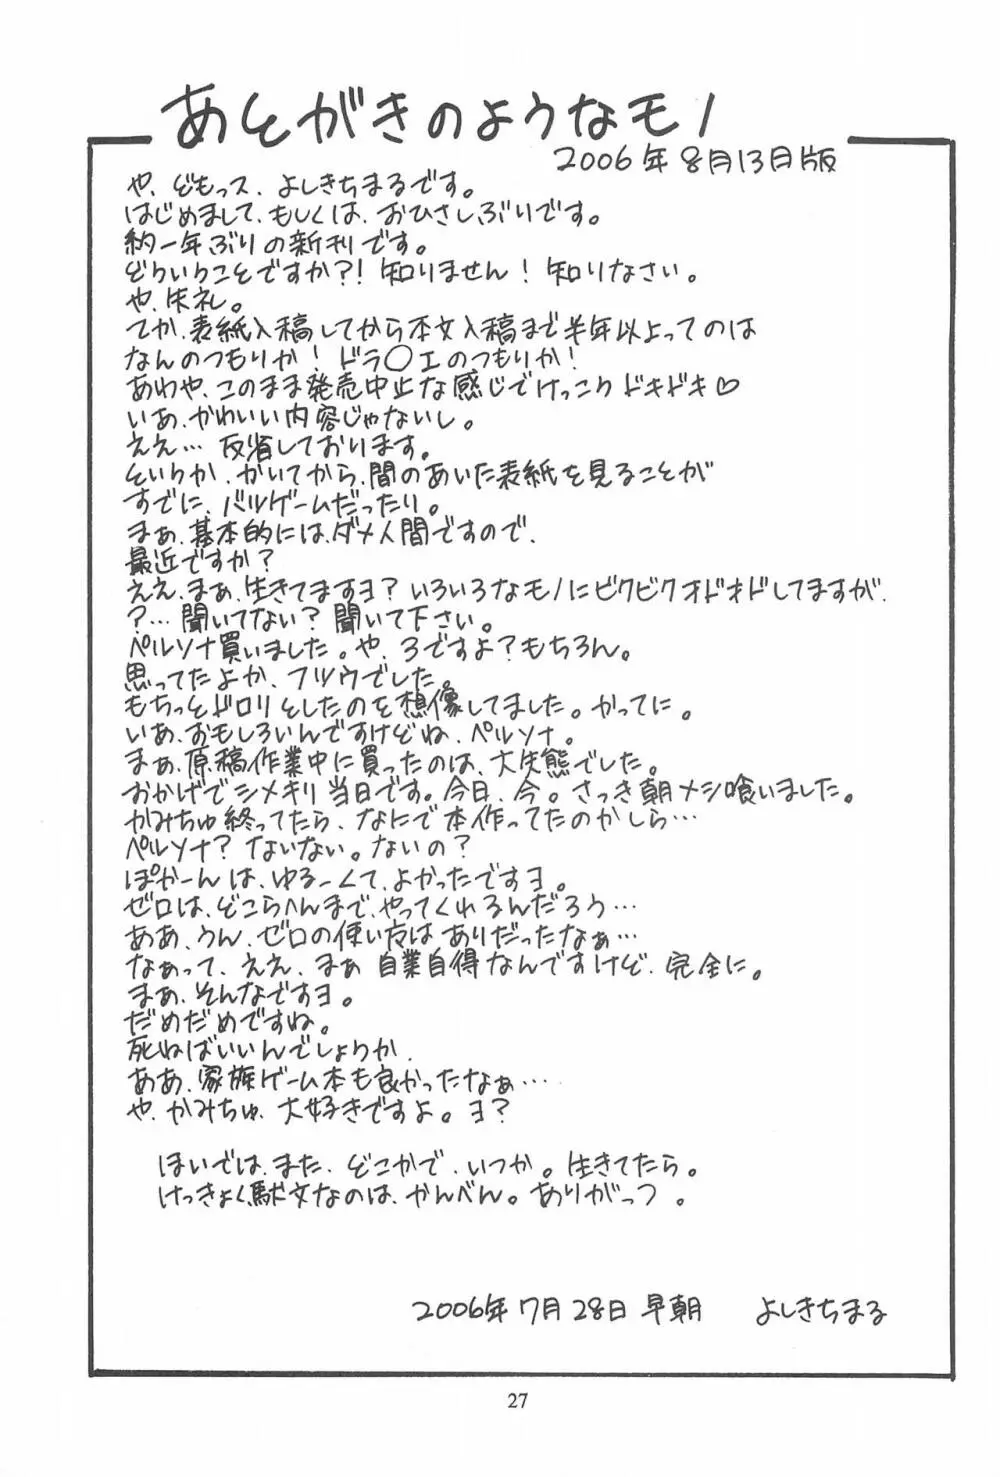 あとがきのようなモノ
2006年8月13日版
や、どもっス、よしきちまるです。
はじめまして、もしくは、おひさしぶりです。
約一年ぶりの新刊です。
どういうことですか?! 知りません! 知りなさい。
や、失礼。
てか、表紙入稿してから本文入稿まで半年以上ってのは
なんのつもりか! ドラ○エのつもりか!
あわや、このまま発売中止な感じでけっこうドキドキ♡
いあ、かわいい内容じゃないし。
ええ… 反省しております。
というか、かいてから、間のあいた表紙を見ることが
すでに、バツゲームだったり。
まぁ、基本的には、ダメ人間ですので、
最近ですか?
ええ、まぁ、生きてますヨ? いろいろなモノにビクビクオドオドしてますが、
?… 聞いてない? 聞いて下さい。
ペルソナ買いました。や、3ですよ? もちろん。
思ってたよか、フツウでした。
もちっとドロリとしたのを想像してました。かってに。
いあ、おもしろいんですけどね、ペルソナ。
まぁ、原稿作業中に買ったのは、大失態でした。
おかげでシメキリ当日です。今日、今。さっき朝メシ喰いました。
かみちゅ終ってたら、なにで本作ってたのかしら…
ペルソナ? ないない。ないの?
ぽかーんは、ゆるーくて、よかったですヨ。
ゼロは、どこらへんまで、やってくれるんだろう…
ああ、うん、ゼロの使い方はありだったなぁ…
なぁって、ええ、まぁ 自業自得なんですけど、完全に。
まぁ、そんなですヨ。
だめだめですね。
死ねばいいんでしょうか、
ああ、家族ゲーム本も良かったなぁ…
や、かみちゅ、大好きですよ。ヨ?
ほいでは、また、どこかで、いつか。生きてたら。
けっきょく駄文なのは、かんべん。ありがっつ。
2006年7月28日早朝 よしきちまる
27